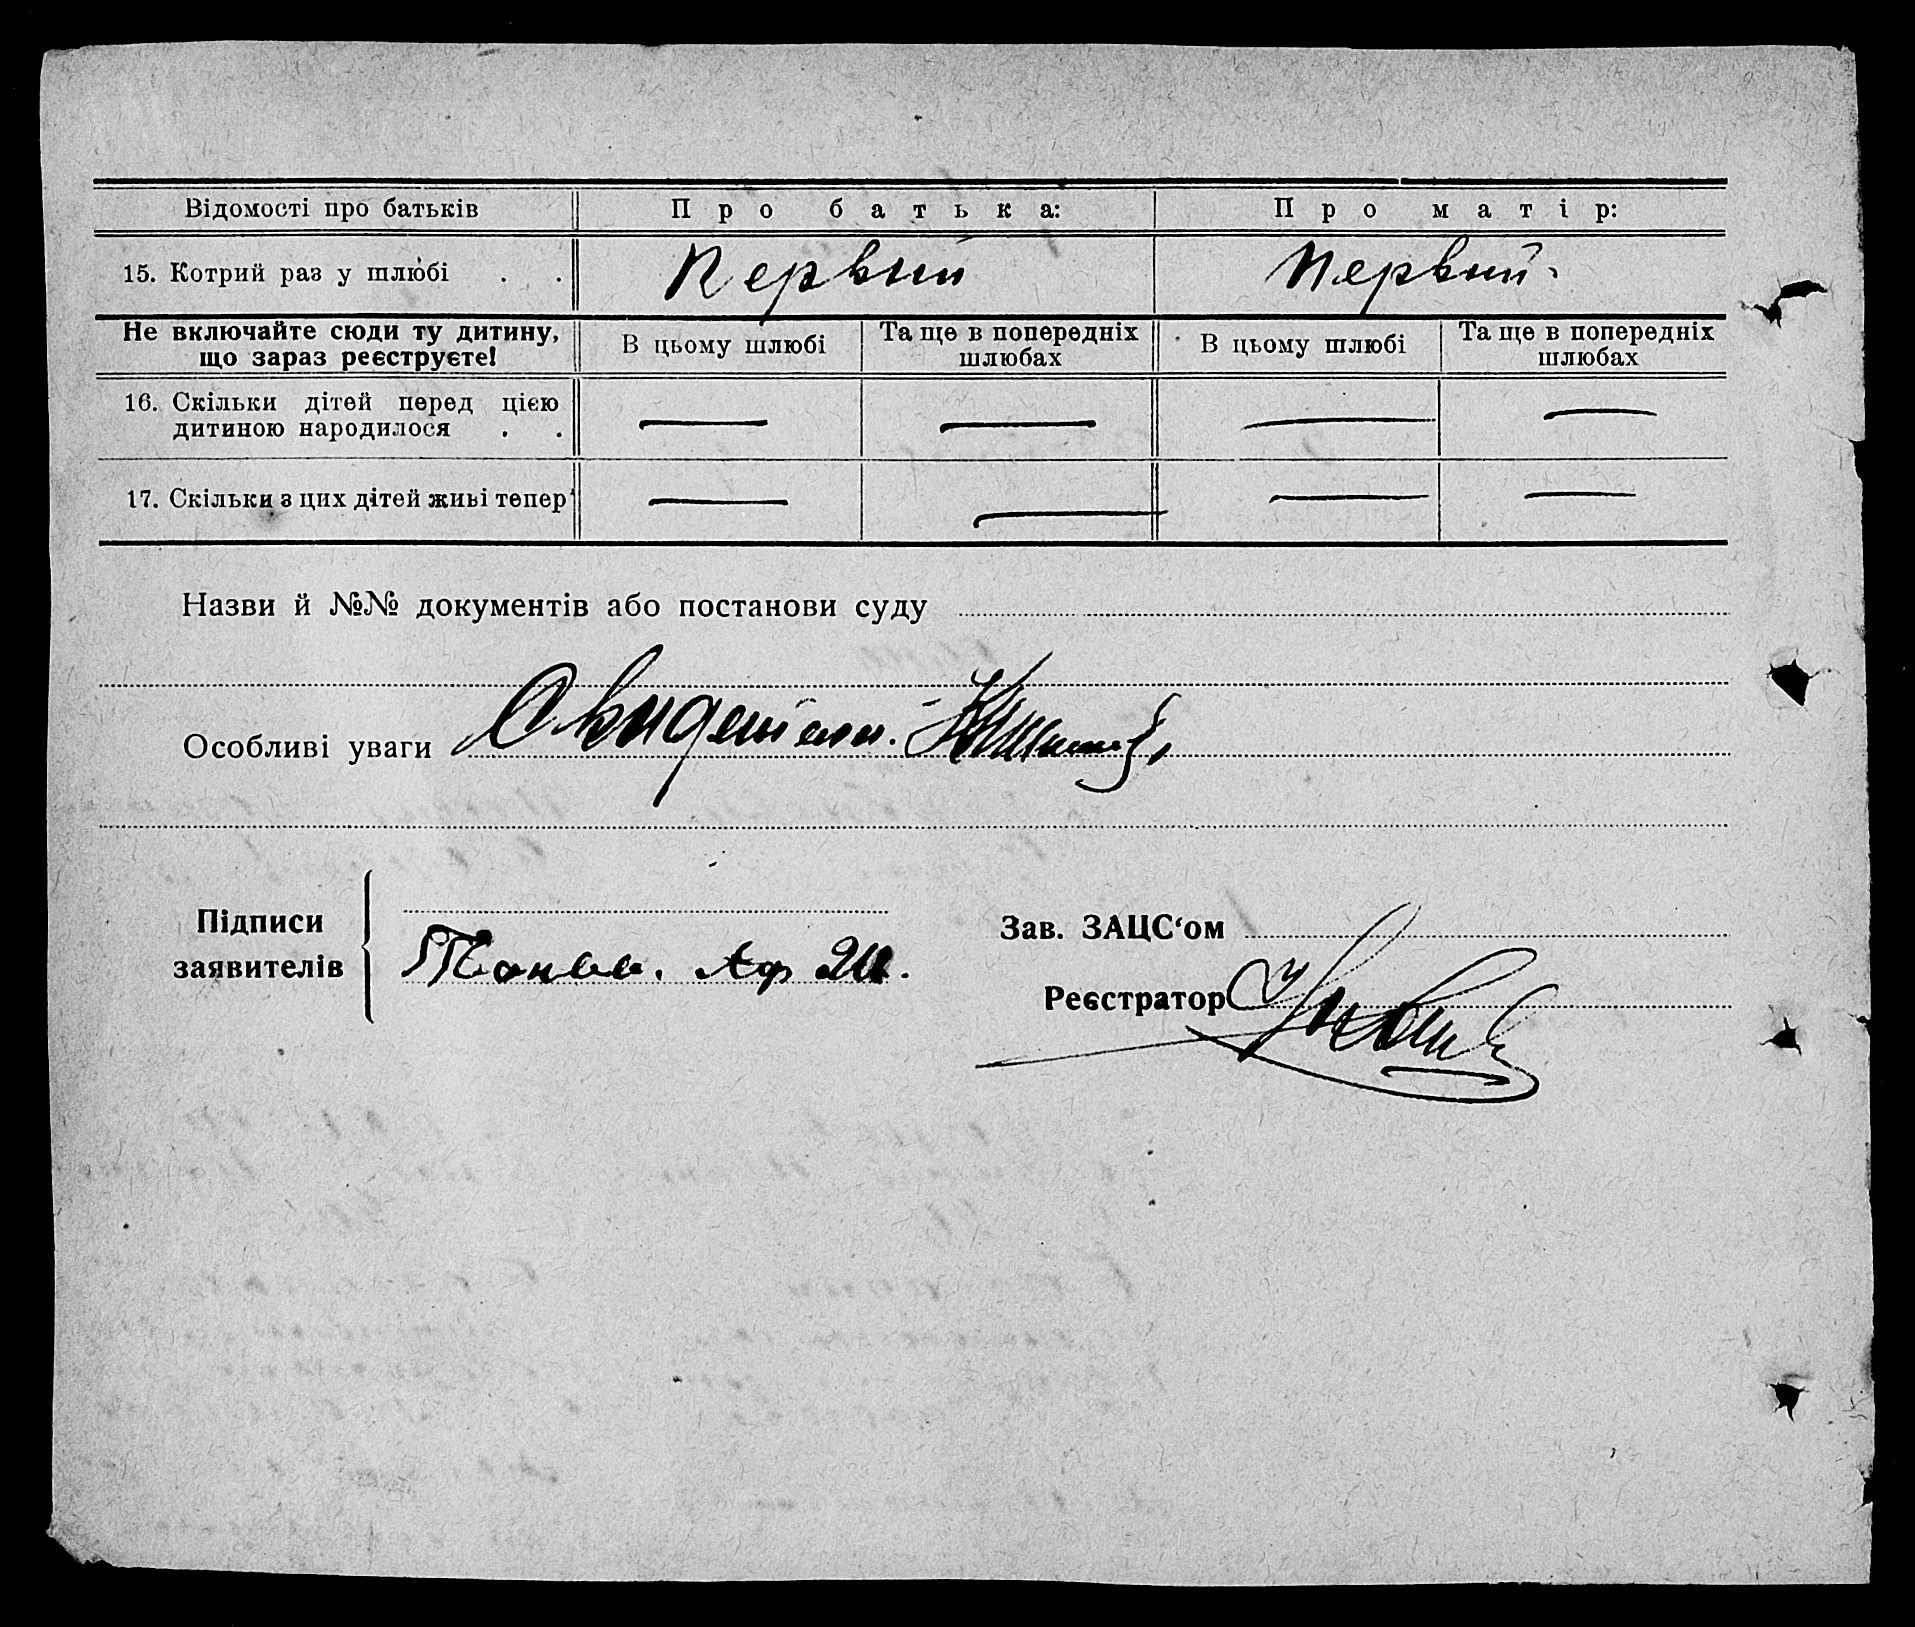 Відомості про батьків Про батька: Про матір:
15. Котрий раз у шлюбі . . Первый Первый.
Не включайте сюди ту дитину, що зараз реєструєте! В цьому шлюбі Та ще в попередніх шлюбах В цьому шлюбі Та ще в попередніх шлюбах
16. Скільки дітей перед цією
дитиною народилося . . — — — —
17. Скільки з цих дітей живі тепер — — — —
Назви й №№ документів або постанови суду
Особливі уваги Свидетели.
Підписи
заявителів
Зав. ЗАЦС‘ом
Реєстратор